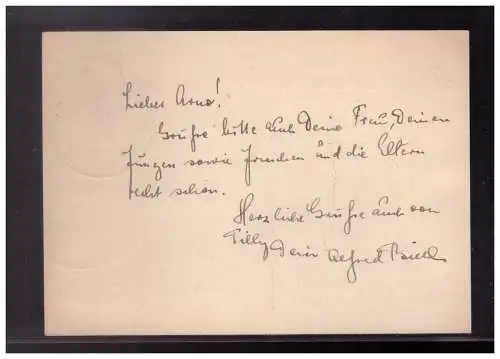 Lieber Arno!
Grüsse bitte auch Deine Frau, Deinen
Jungen sowie und die Eltern
recht schön.
Herzliche Grüsse auch von
Tilly Dein Alfred